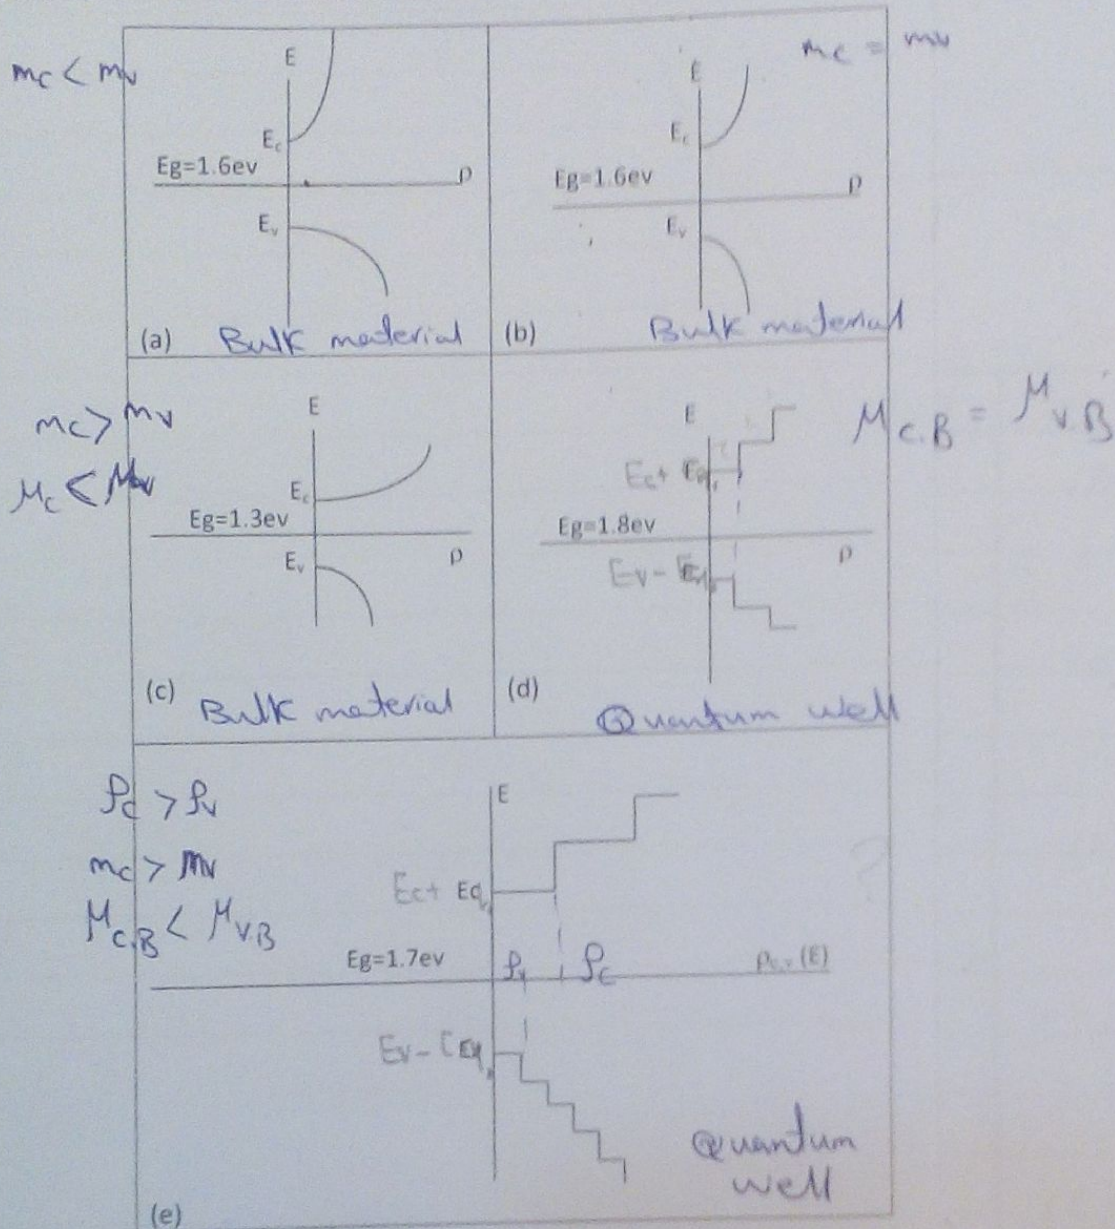 mc < mv
E
Ec
Eg=1.6ev
p
Ev
(a) Bulk material
mc = mv
E
Ec
Eg=1.6ev
p
Ev
(b) Bulk material
mc > mv
μc < μv
E
Ec
Eg=1.3ev
p
Ev
(c) Bulk material
μC.B = μV.B
E
Ec + Eq1
Eg=1.8ev
p
Ev - Eq1
(d)
Quantum well
ρc > ρv
mc > mv
μC.B < μV.B
E
Ec + Eq1
Eg=1.7ev
ρv ρc
ρc,v (E)
Ev - Eq1
Quantum
well
(e)